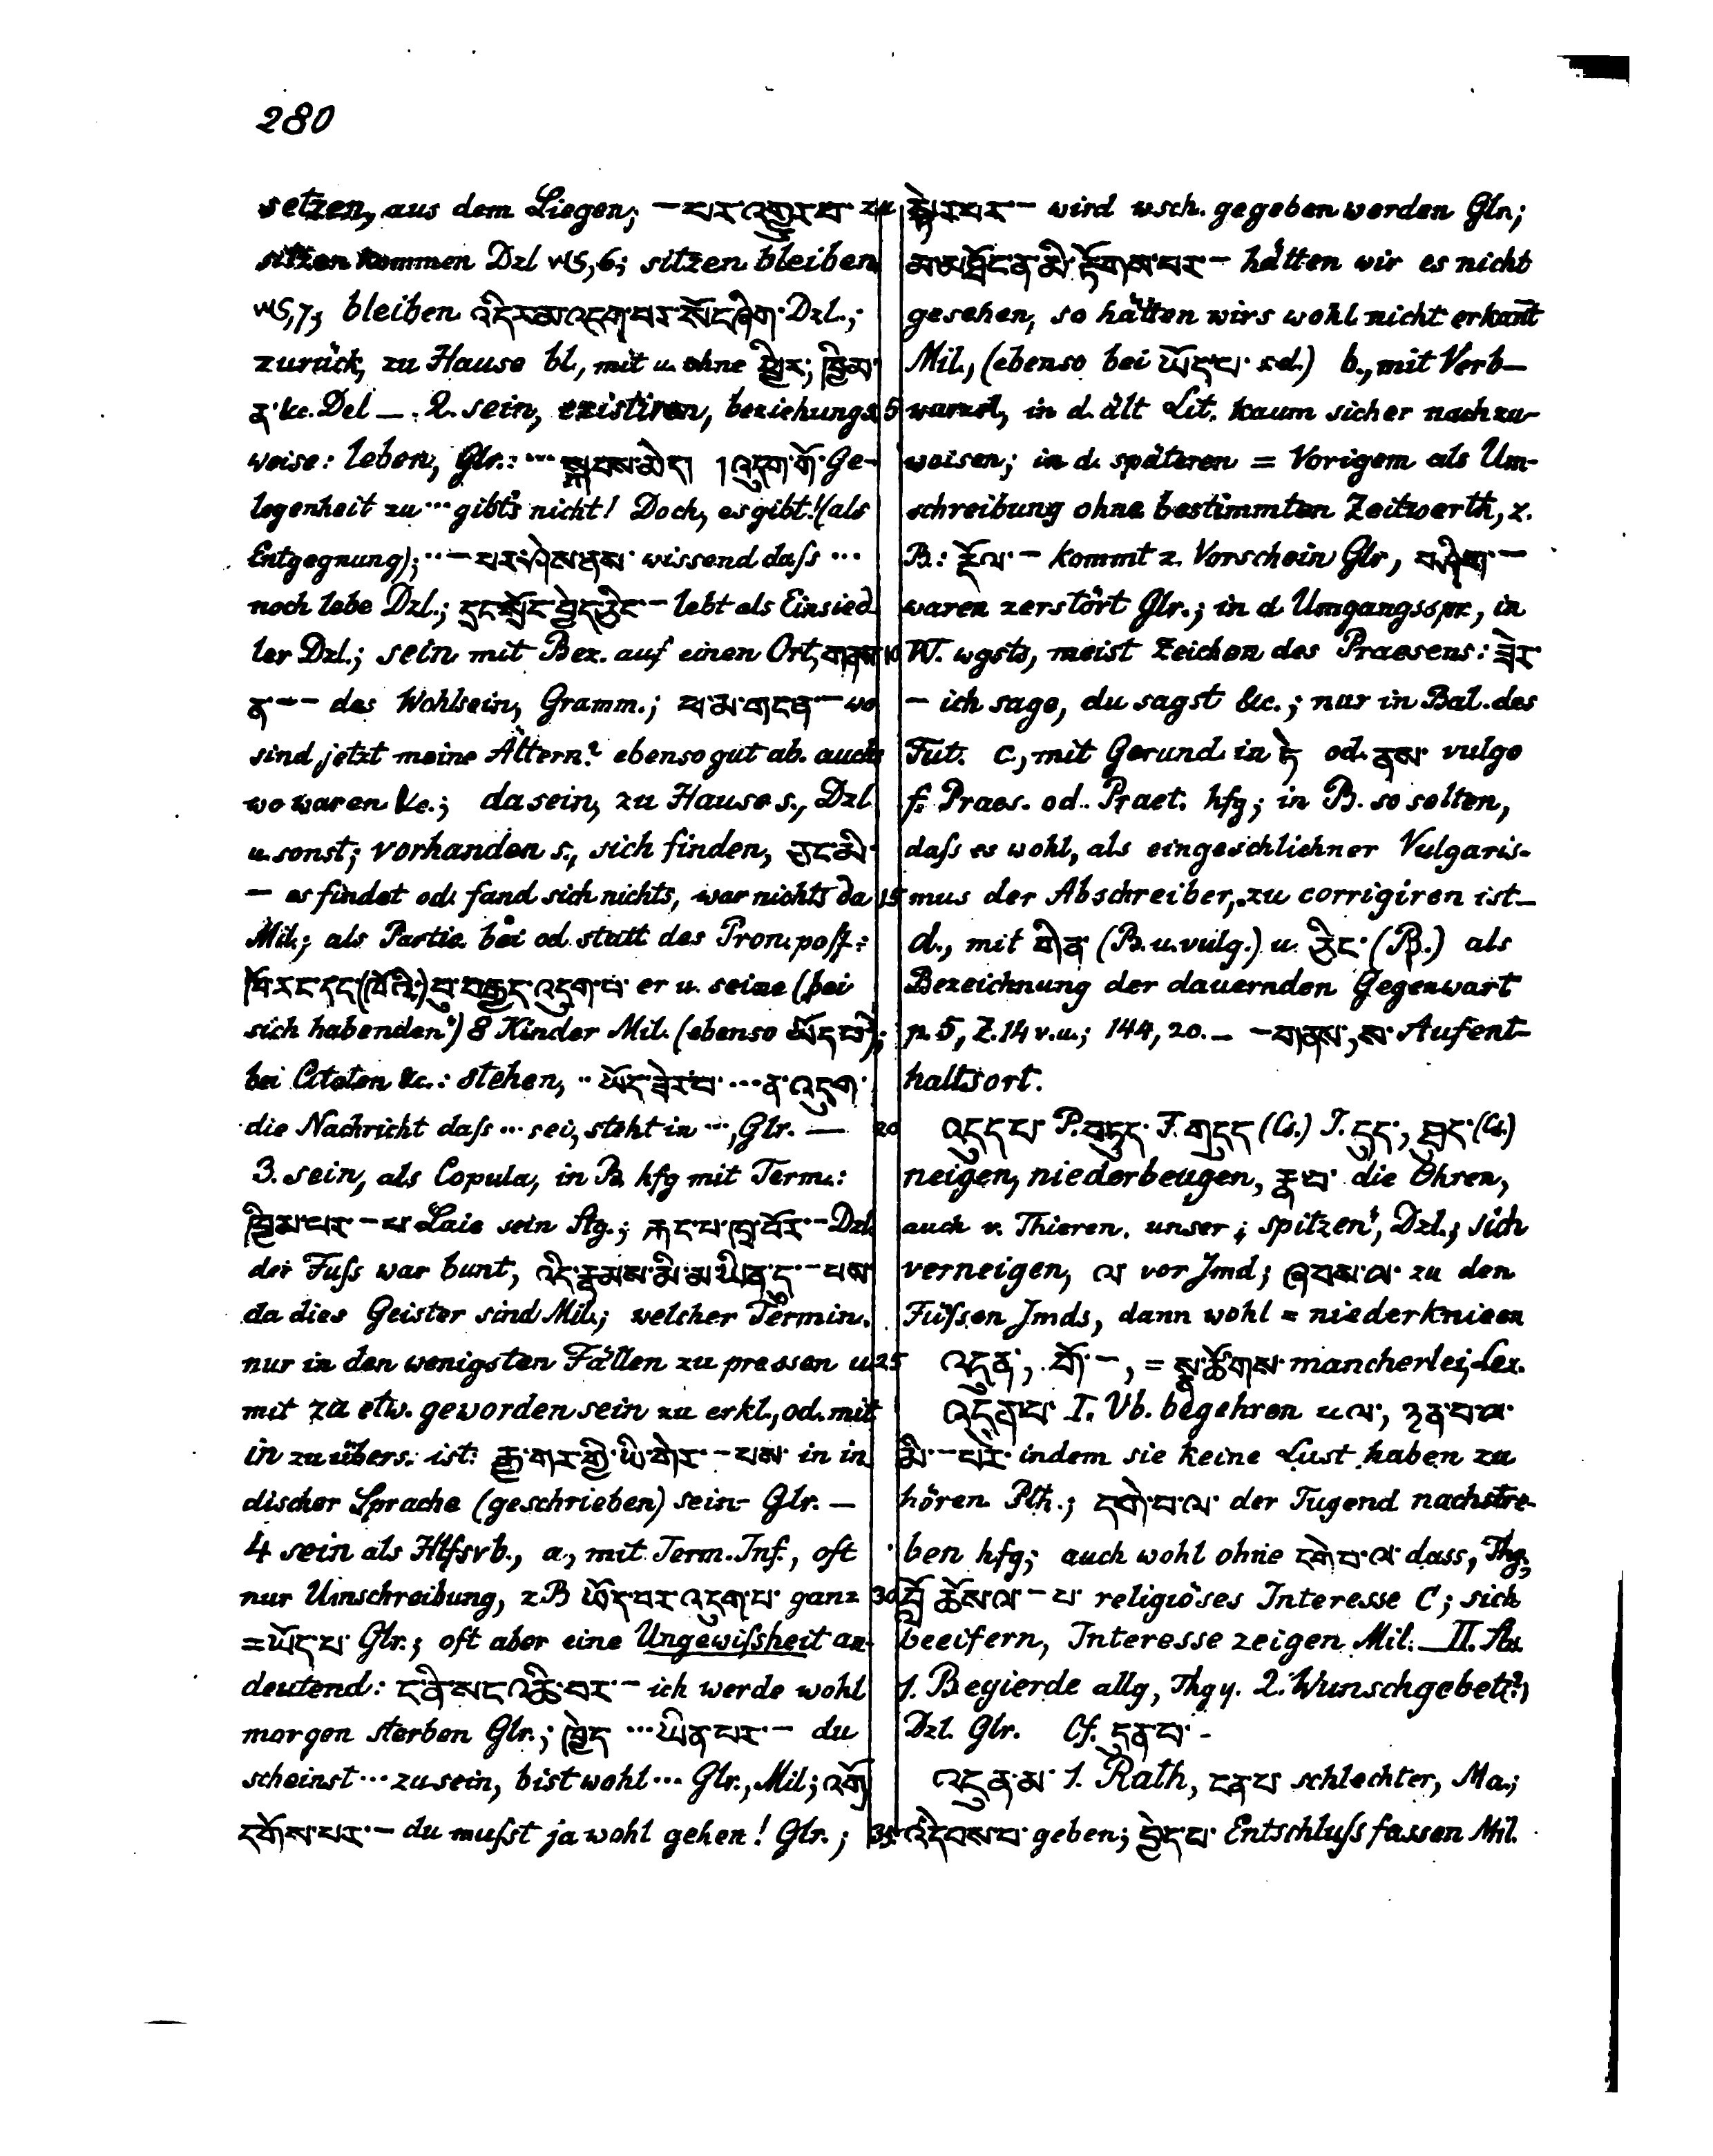 280
setzen, aus dem Liegen; — པར་འགྱུར་བ་ zu
sitzen kommen Dzl ༢༥,6; sitzen bleiben
༢༥,7; bleiben འདི་རམ་འདུག་པར་སོད་ཞིག་ Dzl.;
zurück, zu Hause bl., mit u. ohne ཕྱིར; ཁྱིམ་
ན་ &c. Del —. 2. sein, existiren, beziehungs
weise: leben, Glr.: ... སྐབས་མེད། །འདུག་གོ་ Ge-
legenheit zu ... gibt's nicht! Doch, es gibt! (als
Entgegnung); ... — པར་ཤེས་ནས་ wissend dass ...
noch lebe Dzl.; དྲང་སྲོང་བྱེད་ཅིང་ — lebt als Einsied
ler Dzl.; sein mit Bez. auf einen Ort, གནས་
ན — des Wohlsein, Gramm.; ཕ་མ་གང་ན — wo
sind jetzt meine Ältern? ebenso gut ab. auch
wo waren &c.; da sein, zu Hause s., Dzl
u. sonst; vorhanden s., sich finden, ཅང་མི་
— es findet od. fand sich nichts, war nichts da
Mil.; als Partic. bei od. statt des Pron. poss.:
ཁོ་རང་དང་(ཁོའི་)བུ་བརྒྱད་འདུག་པ་ er u. seine (bei
sich habenden) 8 Kinder Mil. (ebenso ཡོད་པའི);
bei Citaten &c.: stehen, .. ཡོད་ཟེར་བ་ ... ན་འདུག་
die Nachricht dass ... sei, steht in ..., Glr. —
3. sein, als Copula, in B. hfg mit Term.:
ཁྱིམ་པར་ — པ་ Laie sein Stg.; རྐང་པ་ཁྲ་བོར་ — Dzl.
der Fuss war bunt, འདི་རྣམས་མི་མ་ཡིན་དུ་ — པས་
da dies Geister sind Mil.; welcher Termin.
nur in den wenigsten Fällen zu pressen u
mit zu etw. geworden sein zu erkl., od. mit
in zu übers. ist: རྒྱ་གར་གྱི་ཡི་གེར་ — པས་ in in
discher Sprache (geschrieben) sein Glr. —
4 sein als Hlfsvb., a., mit Term. Inf., oft
nur Umschreibung, z B ཡོད་པར་འདུག་པ་ ganz
= ཡོད་པ་ Glr.; oft aber eine Ungewissheit an-
deutend: ང་ནི་སང་འཆི་བར་ — ich werde wohl
morgen sterben Glr.; ཁྱེད ... ཡིན་པར་ — du
scheinst ... zu sein, bist wohl ... Glr., Mil; འགྲོ་
དགོས་པར་ — du musst ja wohl gehen! Glr.;
སྟེར་བར་ — wird wsch. gegeben werden Glr;
མ་མཐོང་ན་མི་རྟོགས་པར་ — hätten wir es nicht
gesehen, so hätten wirs wohl nicht erkant
Mil., (ebenso bei ཡོད་པ་ xd.) b., mit Verb—
5 wurzel, in d. ält Lit. kaum sicher nachzu-
weisen; in d. späteren = Vorigem als Um-
schreibung ohne bestimmten Zeitwerth, z.
B: རྡོལ་ — kommt z. Vorschein Glr, བཤིག་ —
waren zerstört Glr.; in d Umgangsspr., in
10 W. wgsts, meist Zeichen des Praesens: ཟེར་
— ich sage, du sagst &c.; nur in Bal. des
Fut. c., mit Gerund. in ཏེ od. ནས་ vulgo
f. Praes. od. Praet. hfg; in B. so selten,
dass es wohl, als eingeschlichner Vulgaris-
15 mus der Abschreiber, zu corrigiren ist—
d., mit ཀིན (B. u. vulg.) u. ཅིང་ (B.) als
Bezeichnung der dauernden Gegenwart
p. 5, Z. 14 v. u.; 144, 20. — — གནས་, ས་ Aufent-
haltsort.
20 འདུད་པ་ P. བཏུད་ F. གདུད (Cs.) I. དུད་, (Cs.)
neigen, niederbeugen, རྣ་བ་ die Ohren,
auch v. Thieren, unser „spitzen", Dzl.; sich
verneigen, ལ་ vor Jmd; ཞབས་ལ་ zu den
Füssen Jmds, dann wohl = niederknieen
25 འདུན་, གོ་ —, = སྣ་ཚོགས་ mancherlei, Lex.
འདུན་པ་ I. Vb. begehren c ལ་, ཉན་པ་ལ་
མི་ — པར་ indem sie keine Lust haben zu
hören Pth.; དགེ་བ་ལ་ der Tugend nachstre-
ben hfg; auch wohl ohne དགེ་བ་ལ་ dass, Thg,
30 བློ་ཆོས་ལ་ — པ་ religiöses Interesse C; sich
beeifern, Interesse zeigen Mil. — II. Sbs.
1. Begierde allg, Thgy. 2. Wunschgebet(?)
Dzl. Glr. Cf. དུན་པ་ -
འདུན་མ་ 1. Rath, ངན་པ་ schlechter, Ma.;
35 འདེབས་པ་ geben; བྱེད་པ་ Entschluss fassen Mil.